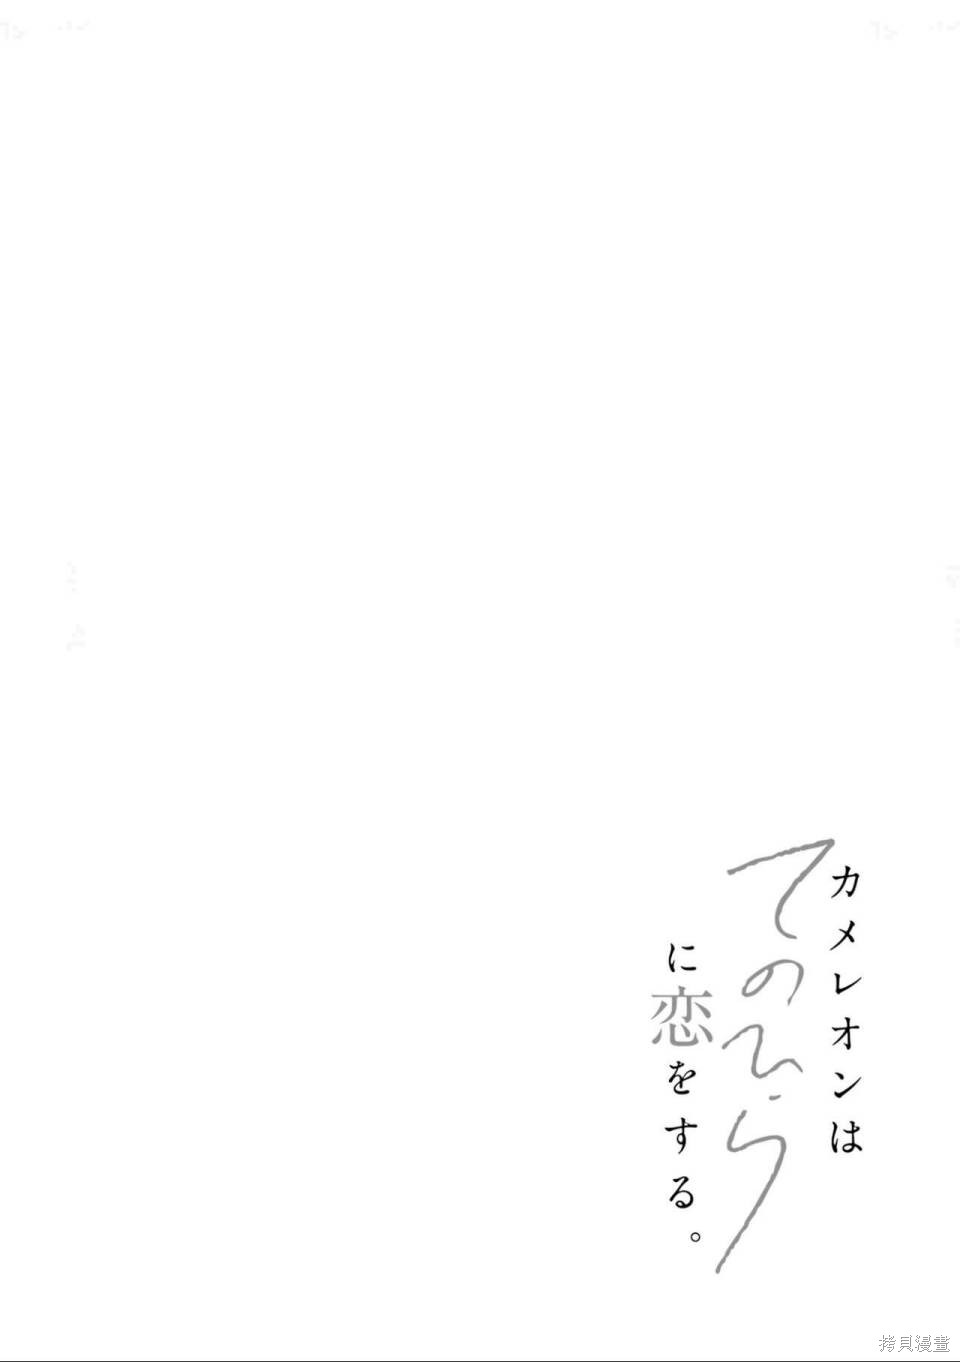 カメレオンは
てのひら
に恋をする。
拷貝漫畫